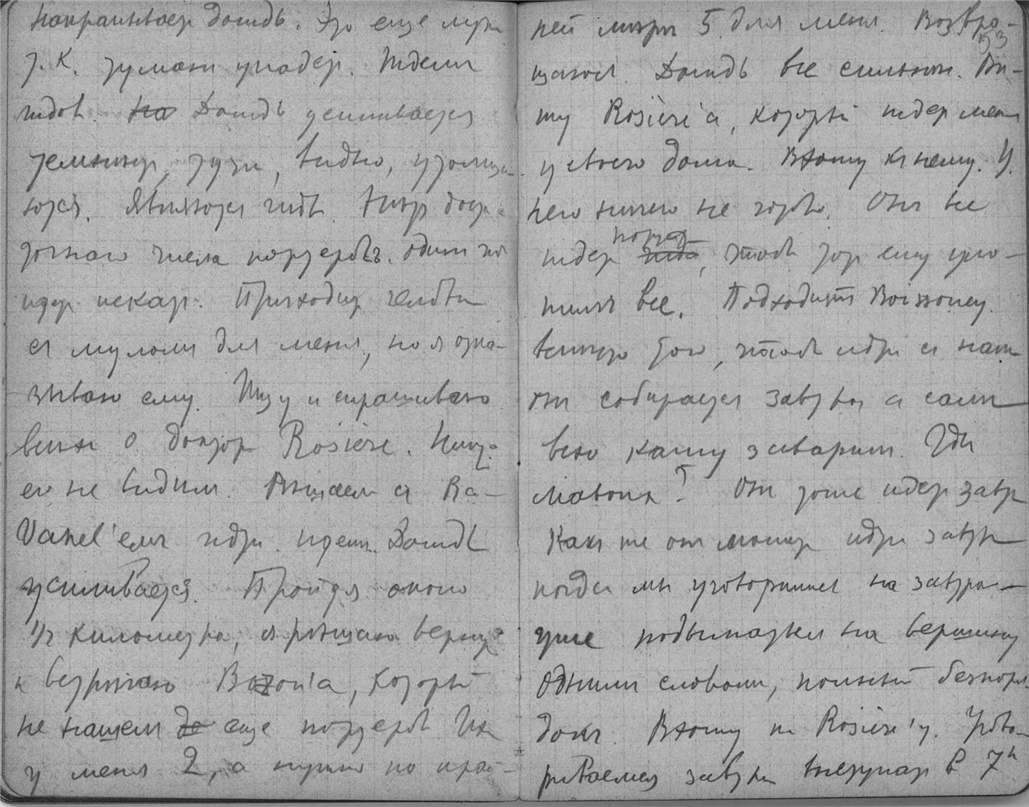 накрапывает дождь. Это еще лучше
т.к. туман упадет. Ждем
гидов. На Дождь усиливается
темнеет, тучи, видно, утолща-
ются. Являются гиды. Нет доста-
точного числа портеров. Один из них
идет искать. Приходит человек
с мулом для меня, но я отка-
зываю ему. Ищу и спрашиваю
всех о доктор Rosière. Ниче-
го не видим. Решаем с Ra-
vanel'ем идти. Идем. Дождь
усиливается. Пройдя около
1/2 километра, я решаю вернуться
и встречаю Bozon'a, который
не нашел до еще портеров. Их
у меня 2, а нужно по край-
ней мере 5 для меня. Возвра-
53
щаюсь. Дождь все сильнее. Ви-
жу Rosière'a, который ждет меня
у своего дома. Вхожу к нему. У
него ничего не готово. Он все
ждет портер, чтобы тот ему уло-
жил все. Подходит Boissonet
всю, чтобы идти с нами
он собирается завтра а сам
всю кашу заварил. Где
? Он тоже идет завтра
Как же он может идти завтра
когда мы уговорились на завтра
уже подыматься на вершину
Одним словом, полный беспоря-
док. Вхожу к Rosière'у. Угова-
риваемся завтра выступать в 7h